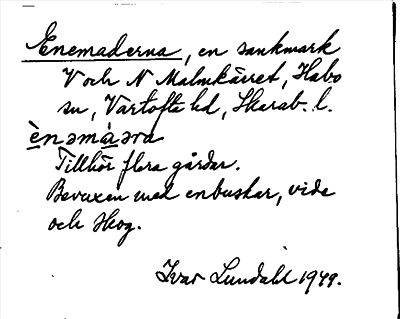 Enemaderna, en sankmark
V och N Malmkärret, Habo
sn, Vartofta hd, Skarab. l.
ènəmàəra
Tillhör flera gårdar.
Bevuxen med enbuskar, vide
och skog.
Ivar Lundahl 1949.